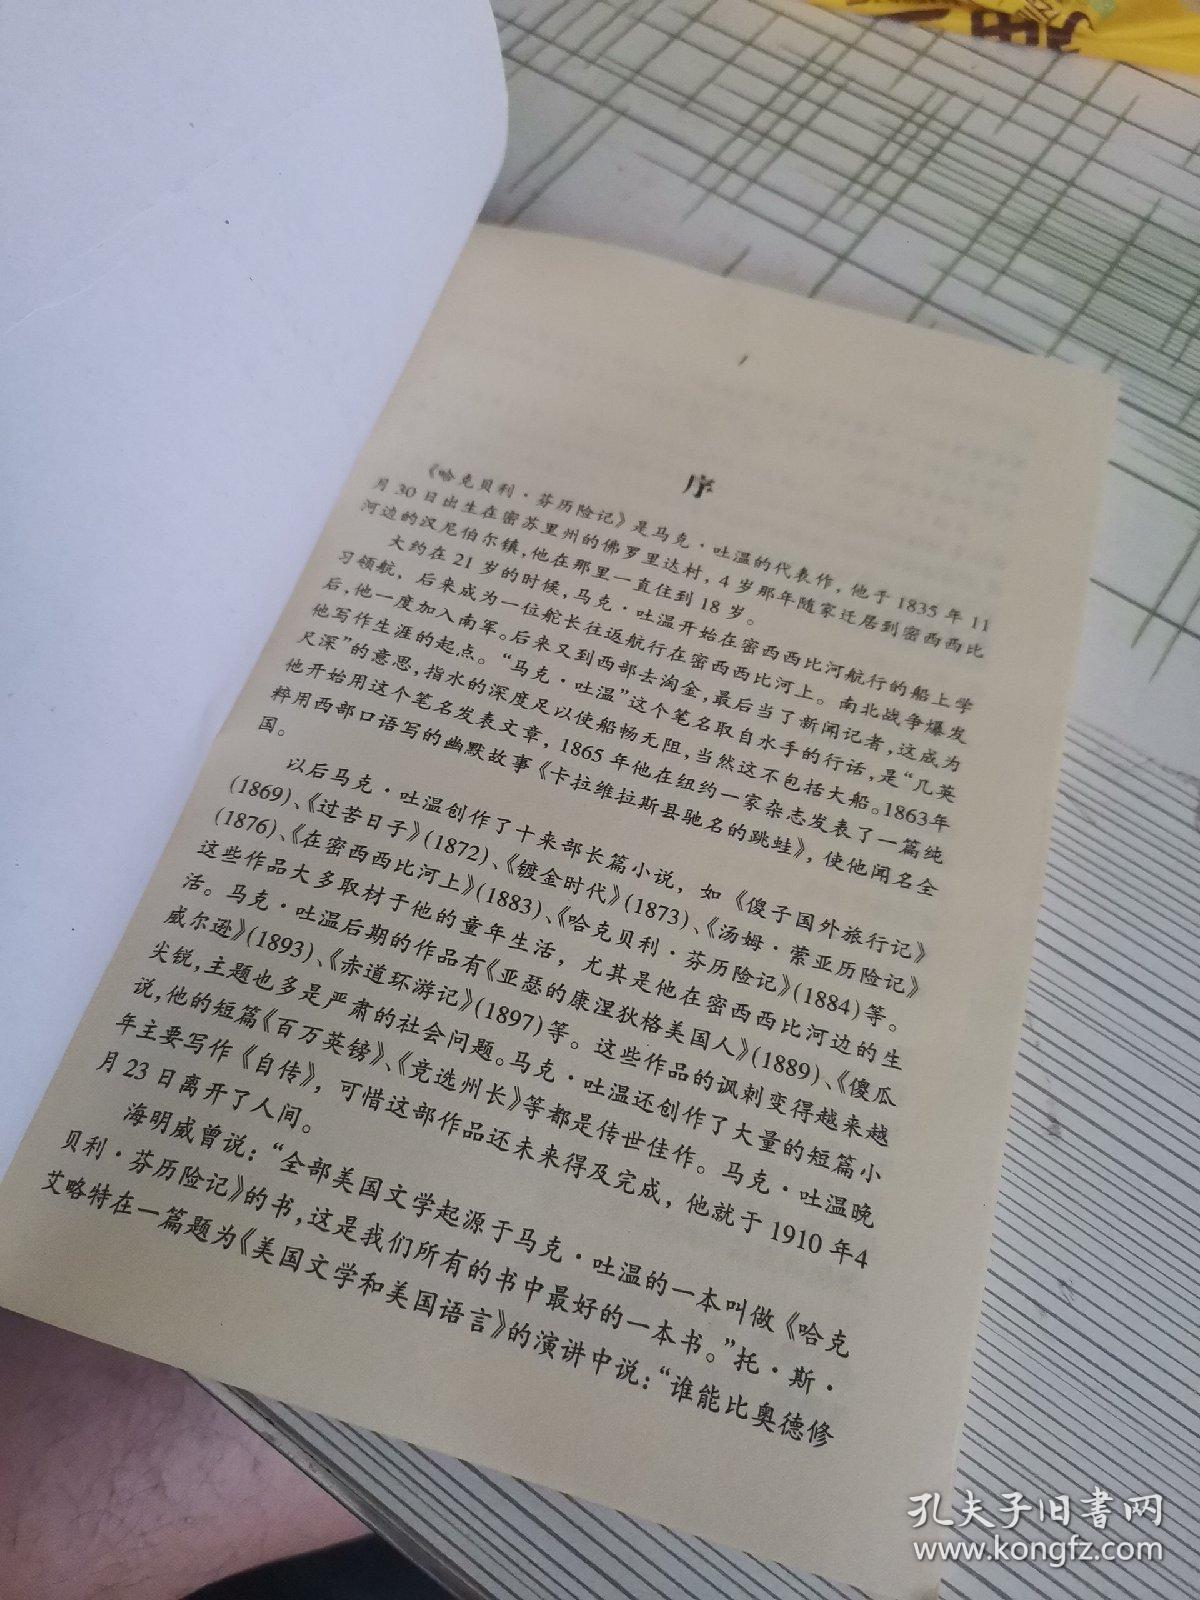 序
《哈克贝利·芬历险记》是马克·吐温的代表作，他于1835年11
月30日出生在密苏里州的佛罗里达村，4岁那年随家迁居到密西西比
河边的汉尼伯尔镇，他在那里一直住到18岁。
大约在21岁的时候，马克·吐温开始在密西西比河航行的船上学
习领航，后来成为一位舵长往返航行在密西西比河上。南北战争爆发
后，他一度加入南军。后来又到西部去淘金，最后当了新闻记者，这成为
他写作生涯的起点。“马克·吐温”这个笔名取自水手的行话，是“几英
尺深”的意思，指水的深度足以使船畅无阻，当然这不包括大船。1863年
他开始用这个笔名发表文章，1865年他在纽约一家杂志发表了一篇纯
粹用西部口语写的幽默故事《卡拉维拉斯县驰名的跳蛙》，使他闻名全
国。
以后马克·吐温创作了十来部长篇小说，如《傻子国外旅行记》
(1869)、《过苦日子》(1872)、《镀金时代》(1873)、《汤姆·萦亚历险记》
(1876)、《在密西西比河上》(1883)、《哈克贝利·芬历险记》(1884)等。
这些作品大多取材于他的童年生活，尤其是他在密西西比河边的生
活。马克·吐温后期的作品有《亚瑟的康涅狄格美国人》(1889)、《傻瓜
威尔逊》(1893)、《赤道环游记》(1897)等。这些作品的讽刺变得越来越
尖锐，主题也多是严肃的社会问题。马克·吐温还创作了大量的短篇小
说，他的短篇《百万英镑》、《竞选州长》等都是传世佳作。马克·吐温晚
年主要写作《自传》，可惜这部作品还未来得及完成，他就于1910年4
月23日离开了人间。
海明威曾说：“全部美国文学起源于马克·吐温的一本叫做《哈克
贝利·芬历险记》的书，这是我们所有的书中最好的一本书。”托·斯·
艾略特在一篇题为《美国文学和美国语言》的演讲中说：“谁能比奥德修
孔夫子旧书网
www.kongfz.com